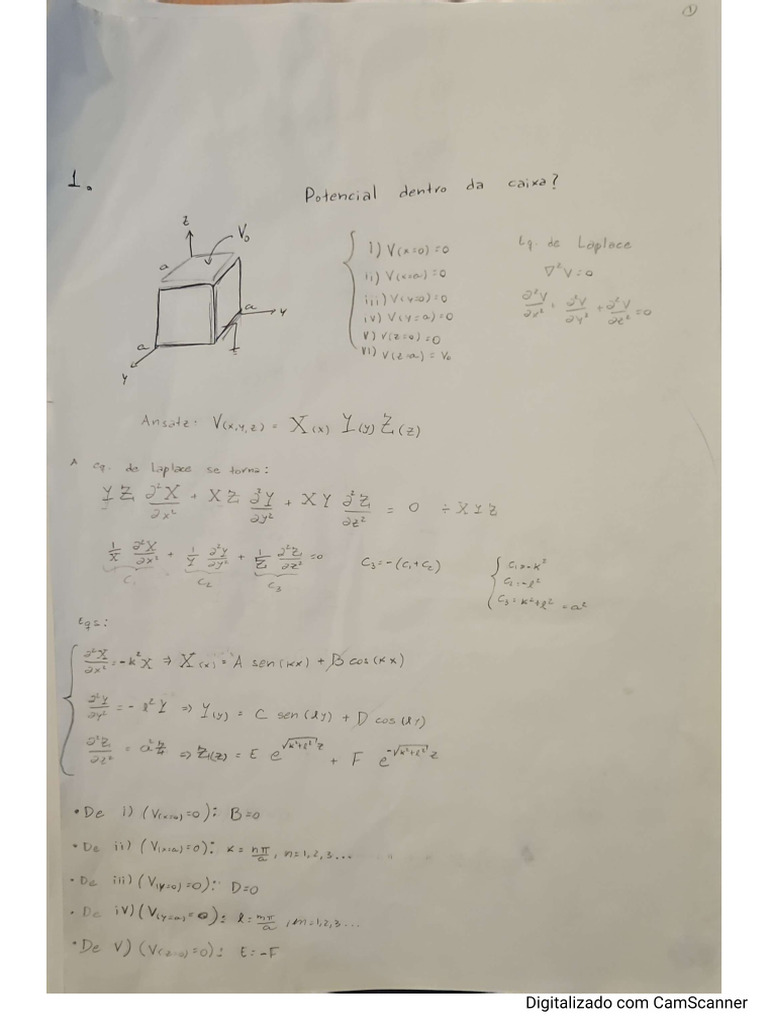 ①
1.
Potencial dentro da caixa?
z
V₀
a
a
y
a
y
i) V(x=0)=0
ii) V(x=a)=0
iii) V(y=0)=0
iv) V(y=a)=0
v) V(z=0)=0
vi) V(z=a) = V₀
Eq. de Laplace
∇²V=0
∂²V/∂x² + ∂²V/∂y² + ∂²V/∂z² = 0
Ansatz: V(x,y,z) = X(x) Y(y) Z(z)
A eq. de Laplace se torna:
YZ ∂²X/∂x² + XZ ∂²Y/∂y² + XY ∂²Z/∂z² = 0 ÷ XYZ
1/X ∂²X/∂x² + 1/Y ∂²Y/∂y² + 1/Z ∂²Z/∂z² = 0
C₁ C₂ C₃
C₃ = -(C₁+C₂)
C₁=-k²
C₂=-l²
C₃=k²+l² = a²
Eqs:
∂²X/∂x² = -k²X ⇒ X(x) = A sen(kx) + B cos(kx)
∂²Y/∂y² = -l²Y ⇒ Y(y) = C sen(ly) + D cos(ly)
∂²Z/∂z² = a²Z ⇒ Z(z) = E e^(√(k²+l²) z) + F e^(-√(k²+l²) z)
• De i) (V(x=0)=0): B=0
• De ii) (V(x=a)=0): k = nπ/a, n=1,2,3...
• De iii) (V(y=0)=0): D=0
• De iv) (V(y=a)=0): l = mπ/a, m=1,2,3...
• De v) (V(z=0)=0): E=-F
Digitalizado com CamScanner